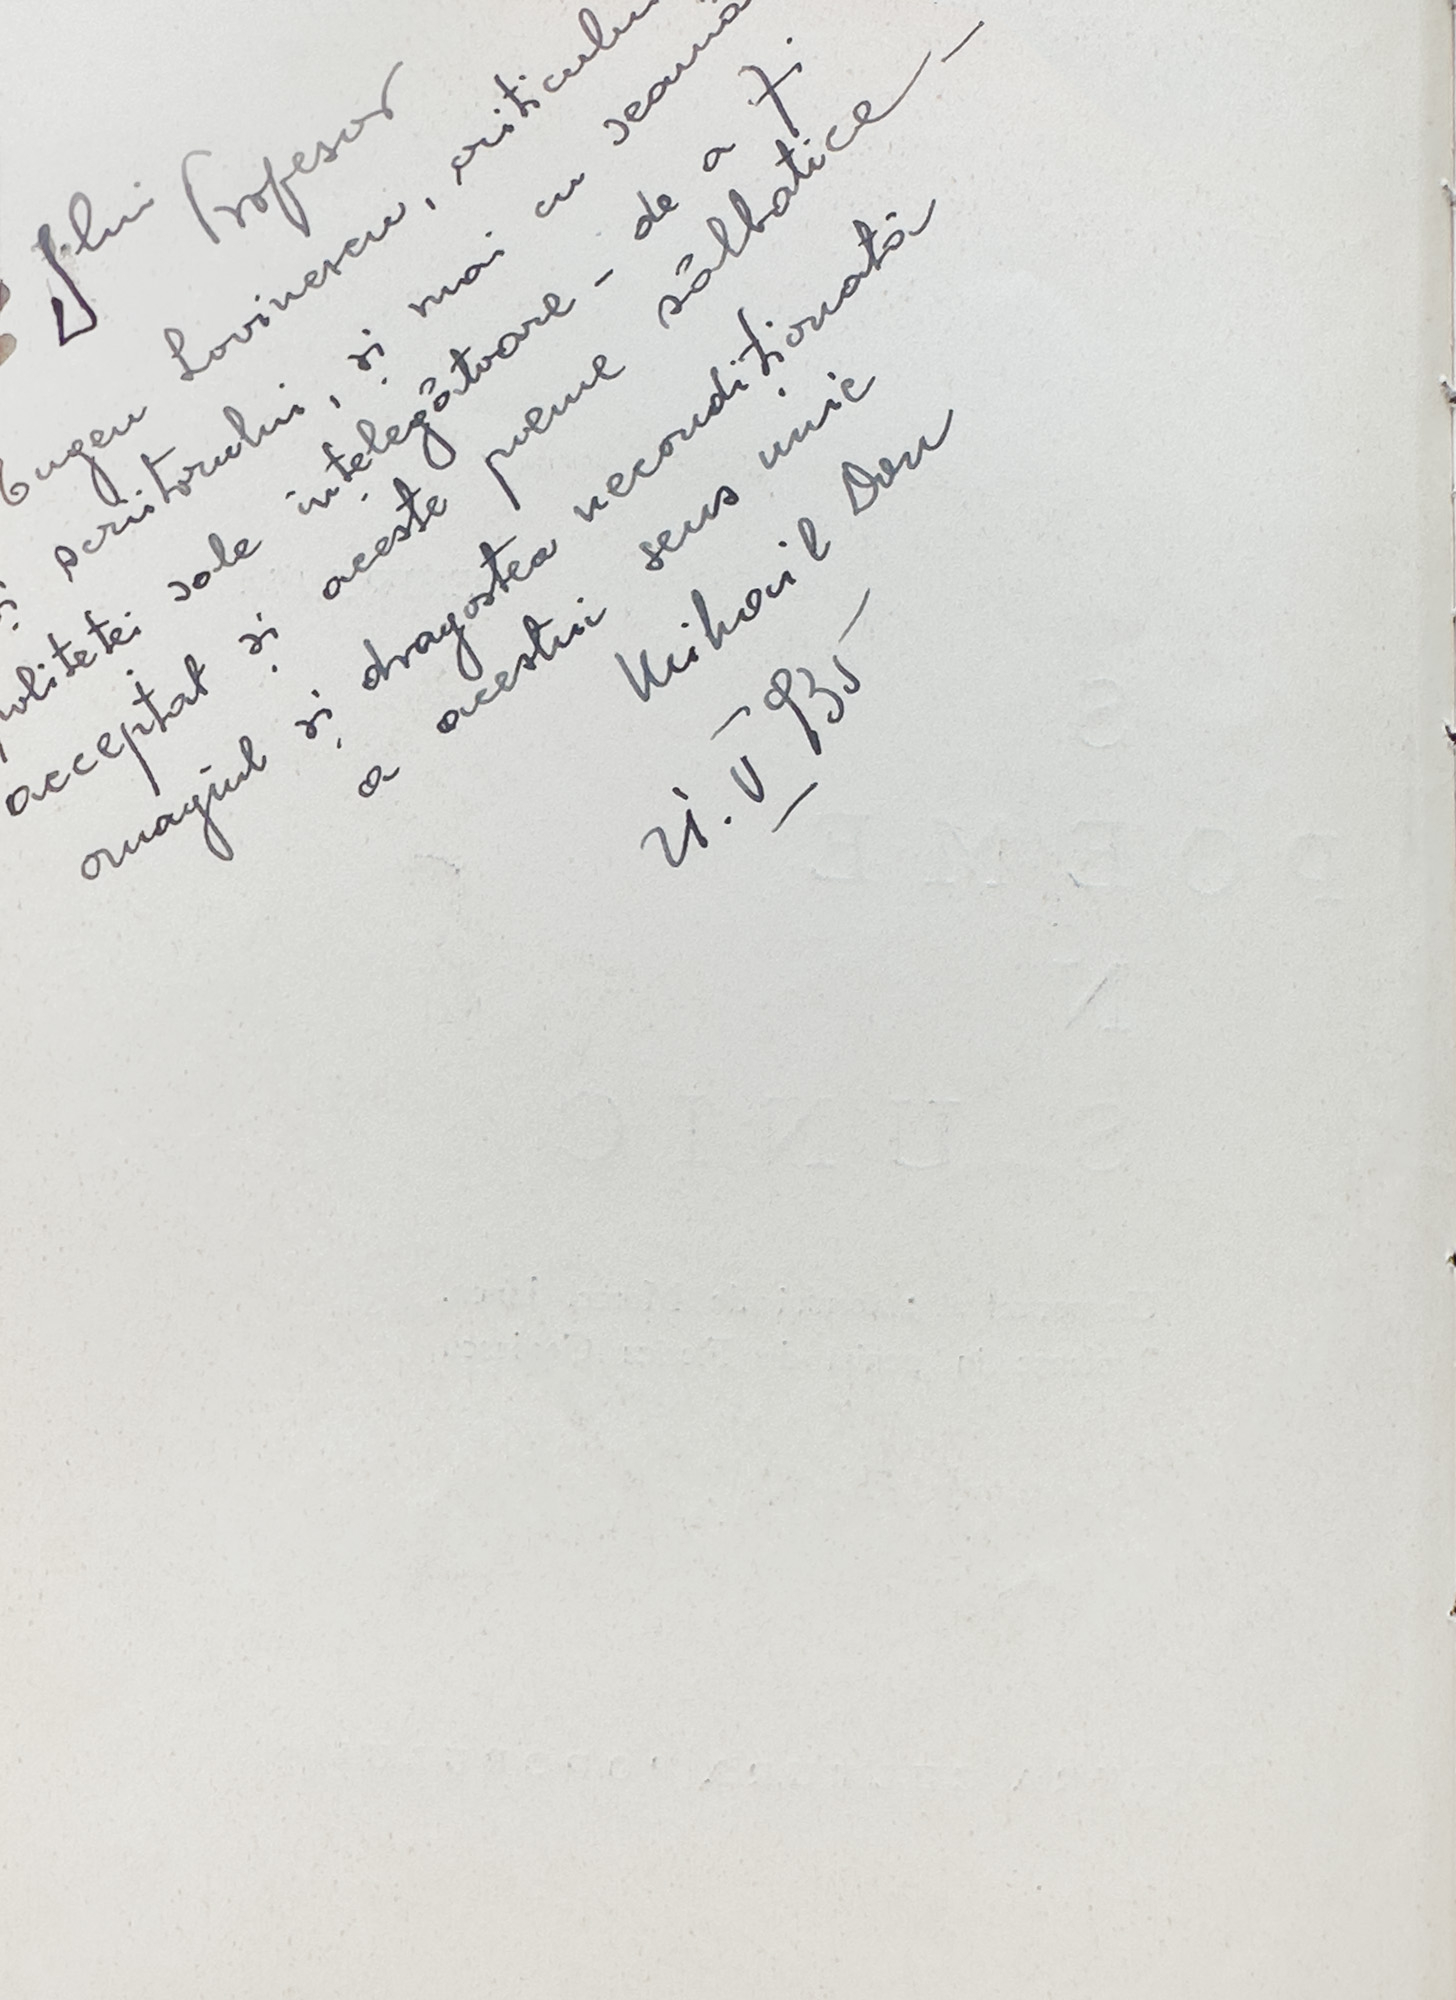 Dlui Profesor
Eugen Lovinescu, criticului
și scriitorului, și mai cu seamă
politeței sale înțelegătoare – de a fi
acceptat și aceste poeme sălbatice –
omagiul și dragostea necondiționată
a acestui sens unic
Mihail Dan
21. V 935
S
POEME
N
S UNIC